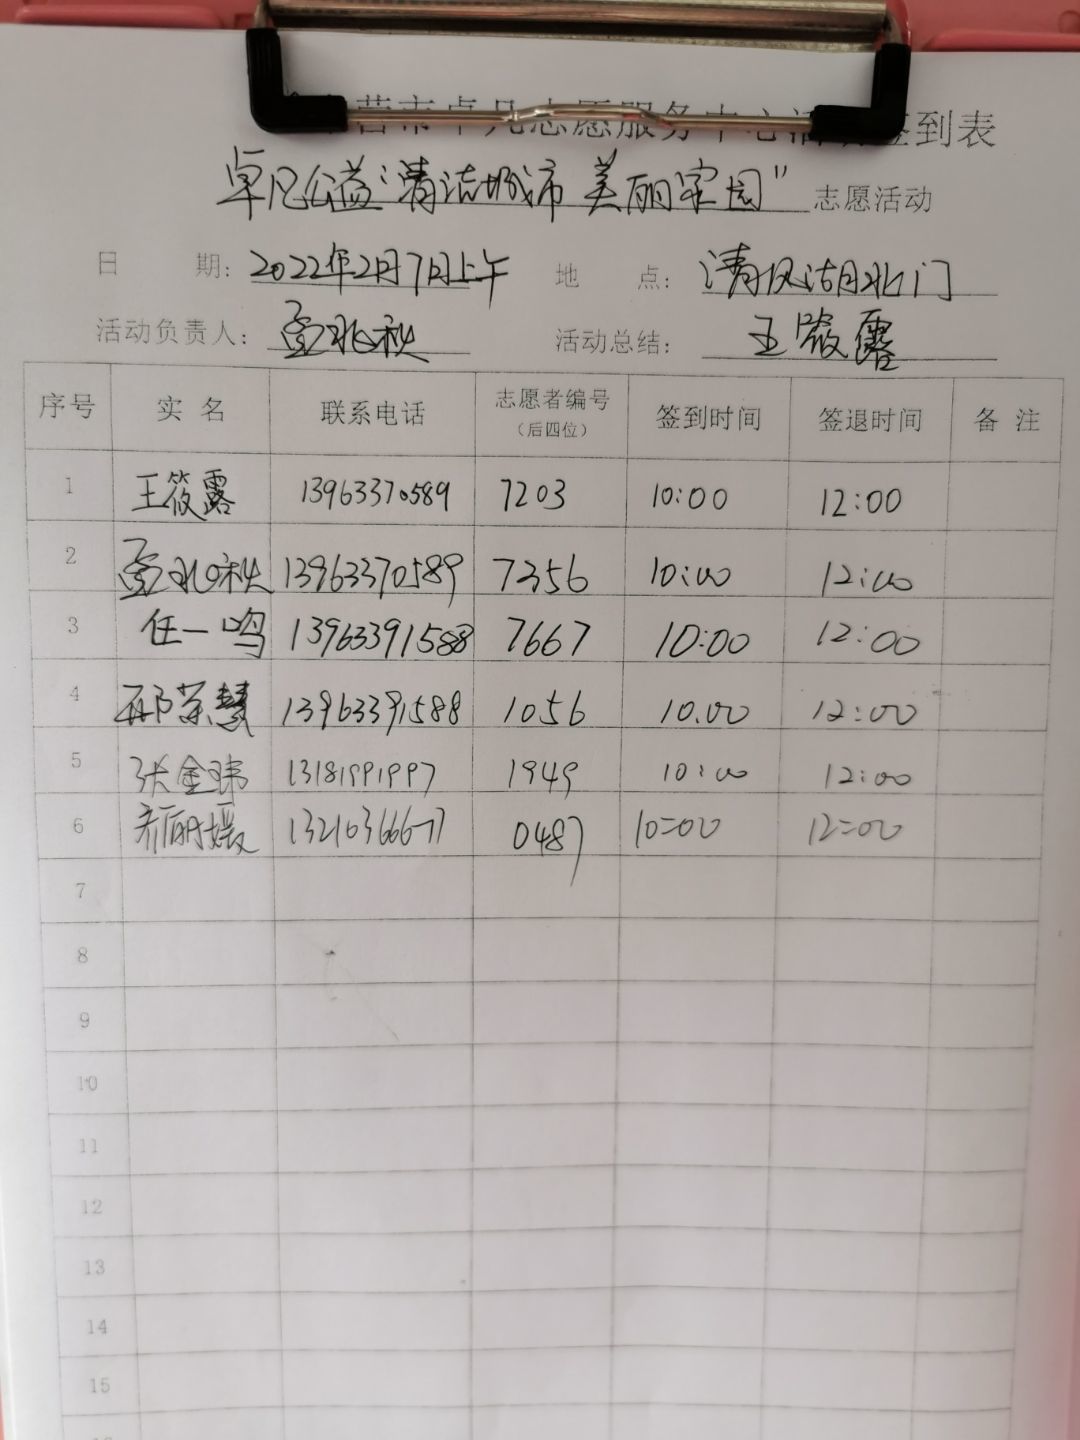 营市卓凡志愿服务中心活动签到表
卓凡公益“清洁城市 美丽家园” 志愿活动
日 期：2022年2月7日上午 地 点：清风湖北门
活动负责人： 活动总结：王筱露
序号 实名 联系电话 志愿者编号（后四位） 签到时间 签退时间 备注
1 王筱露 13963370589 7203 10:00 12:00
2 13963370589 7356 10:00 12:00
3 任一鸣 13963391588 7667 10:00 12:00
4 邴荣慧 13963391588 1056 10.00 12:00
5 张金玮 13181991997 1949 10:00 12:00
6 0487 10=00 12=00
7
8
9
10
11
12
13
14
15